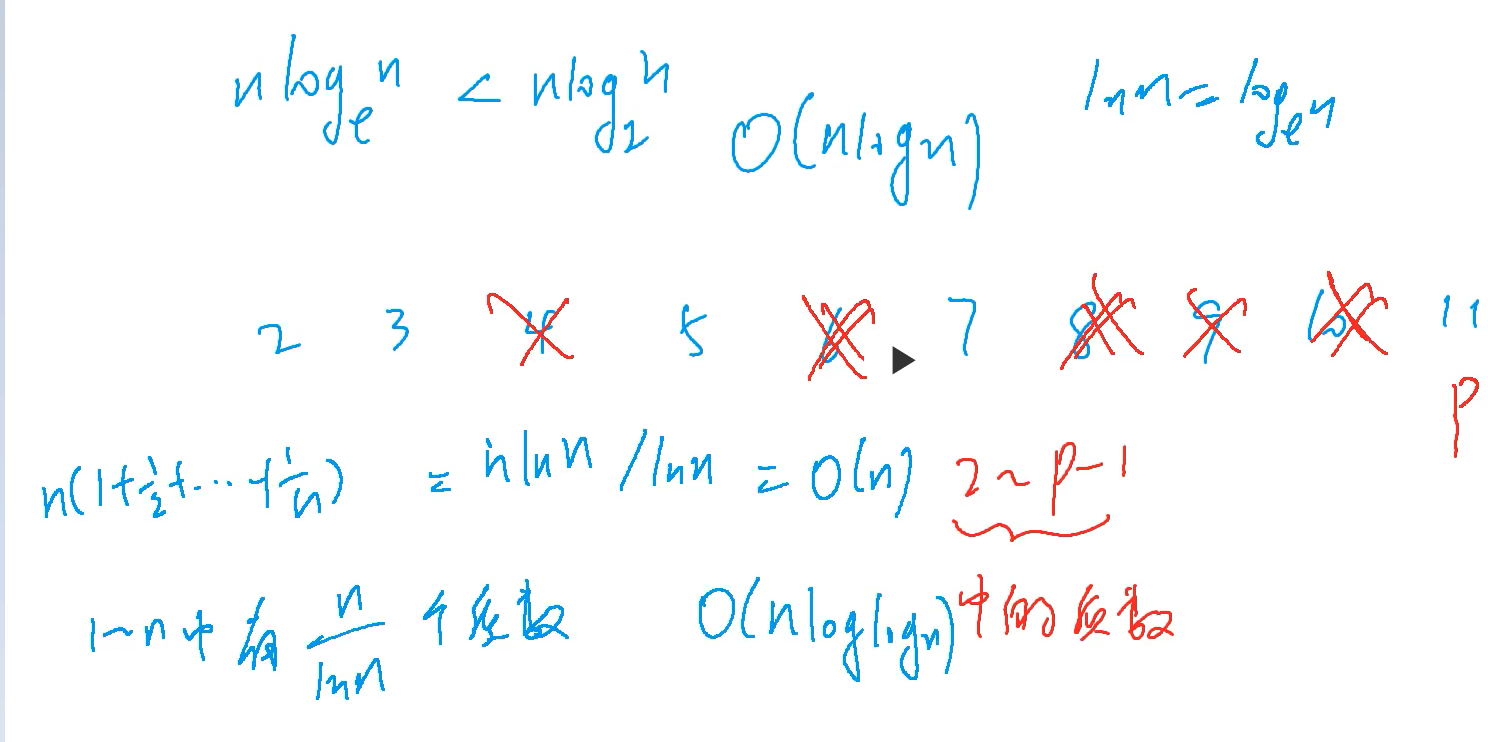 n logₑn < n log₂n O(nlogn) lnn = logₑn
2 3 4 5 6 7 8 9 10 11
P
n(1+1/2+...+1/n) = nlnn /lnn = O(n) 2~P-1
1~n中有 n/lnn 个质数 O(nloglogn) 中的质数